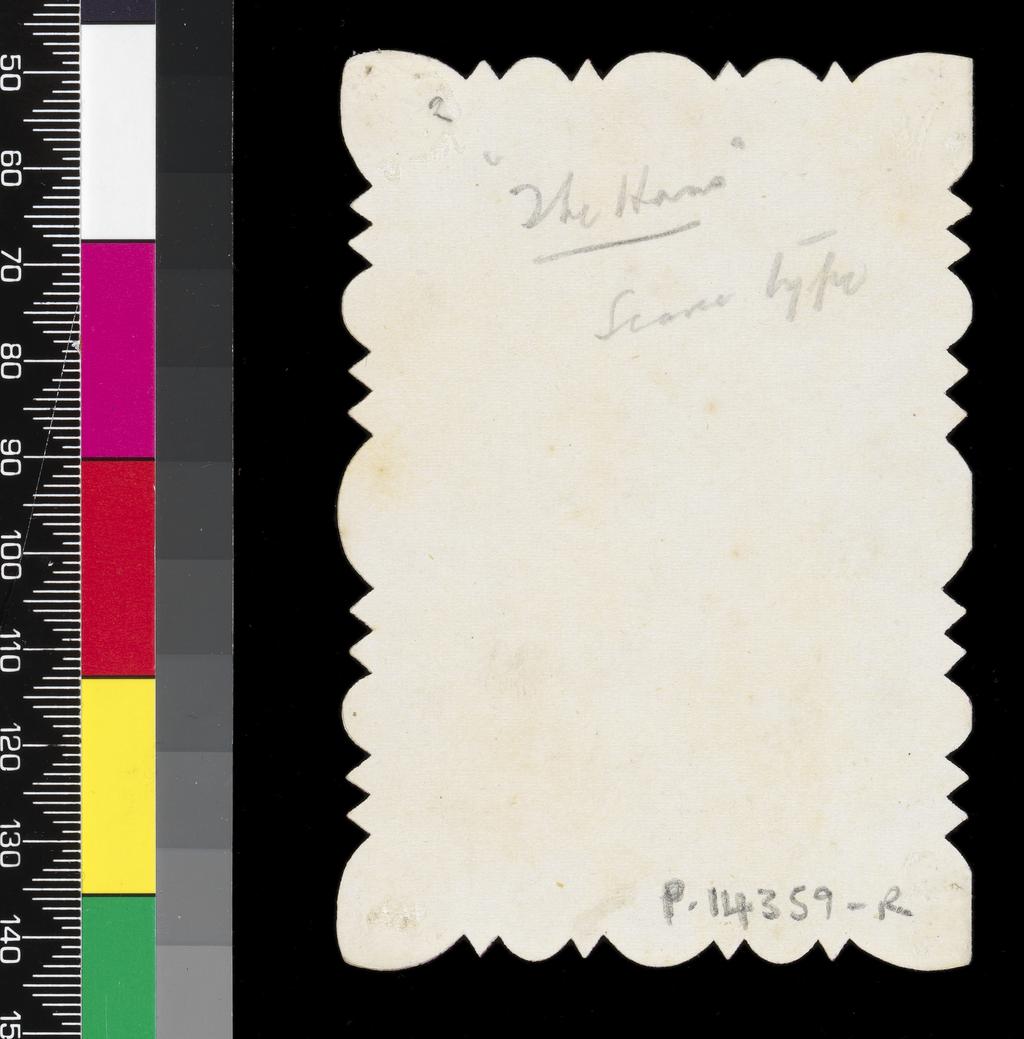 50
60
70
80
90
100
110
120
130
140
15
2
"The
Scarce type
P. 14359-R